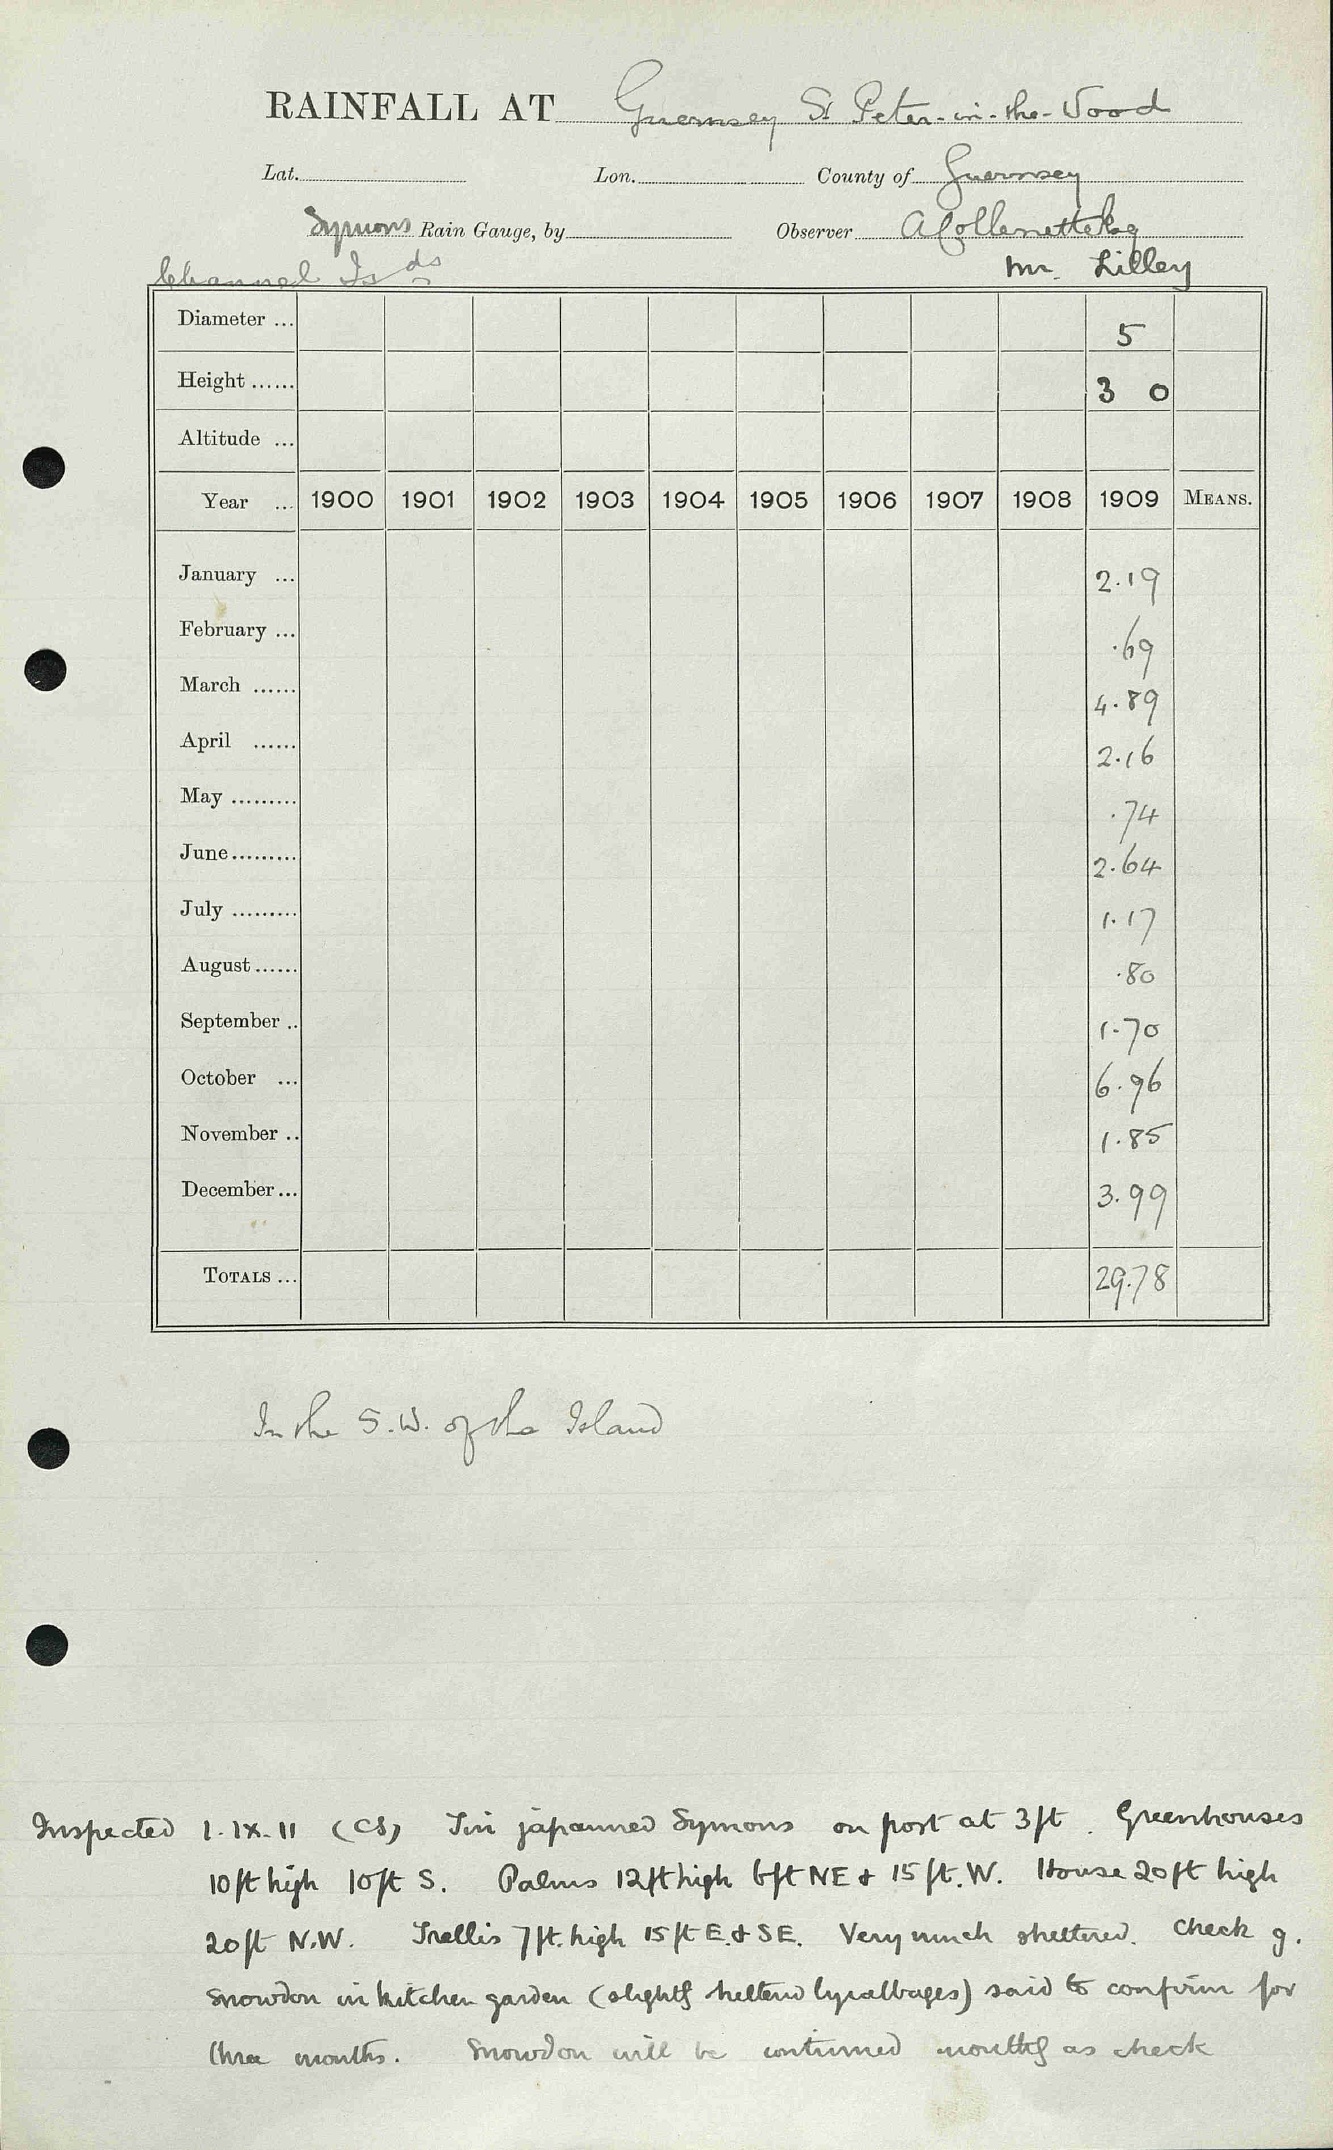 RAINFALL AT Guernsey St Peter-in-the-Wood
Lat. Lon. County of Guernsey
Symons Rain Gauge, by Observer A Collenette Esq
Channel Isds Mr. Lilley
Diameter ... 5
Height ...... 3 0
Altitude ...
Year ... 1900 1901 1902 1903 1904 1905 1906 1907 1908 1909 MEANS.
January ... 2.19
February ... .69
March ...... 4.89
April ...... 2.16
May ......... .74
June......... 2.64
July ......... 1.17
August...... .80
September .. 1.70
October ... 6.96
November .. 1.85
December... 3.99
TOTALS ... 29.78
In the S.W. of the Island
Inspected 1.IX.11 (CS) Tin japanned Symons on post at 3ft. Greenhouses
10ft high 10ft S. Palms 12ft high 6ft NE & 15ft. W. House 20ft high
20ft N.W. Trellis 7ft. high 15ft E. & SE. Very much sheltered. Check g.
Snowdon in kitchen garden (slightly sheltered by cabbages) said to confirm for
three months. Snowdon will be continued monthly as check